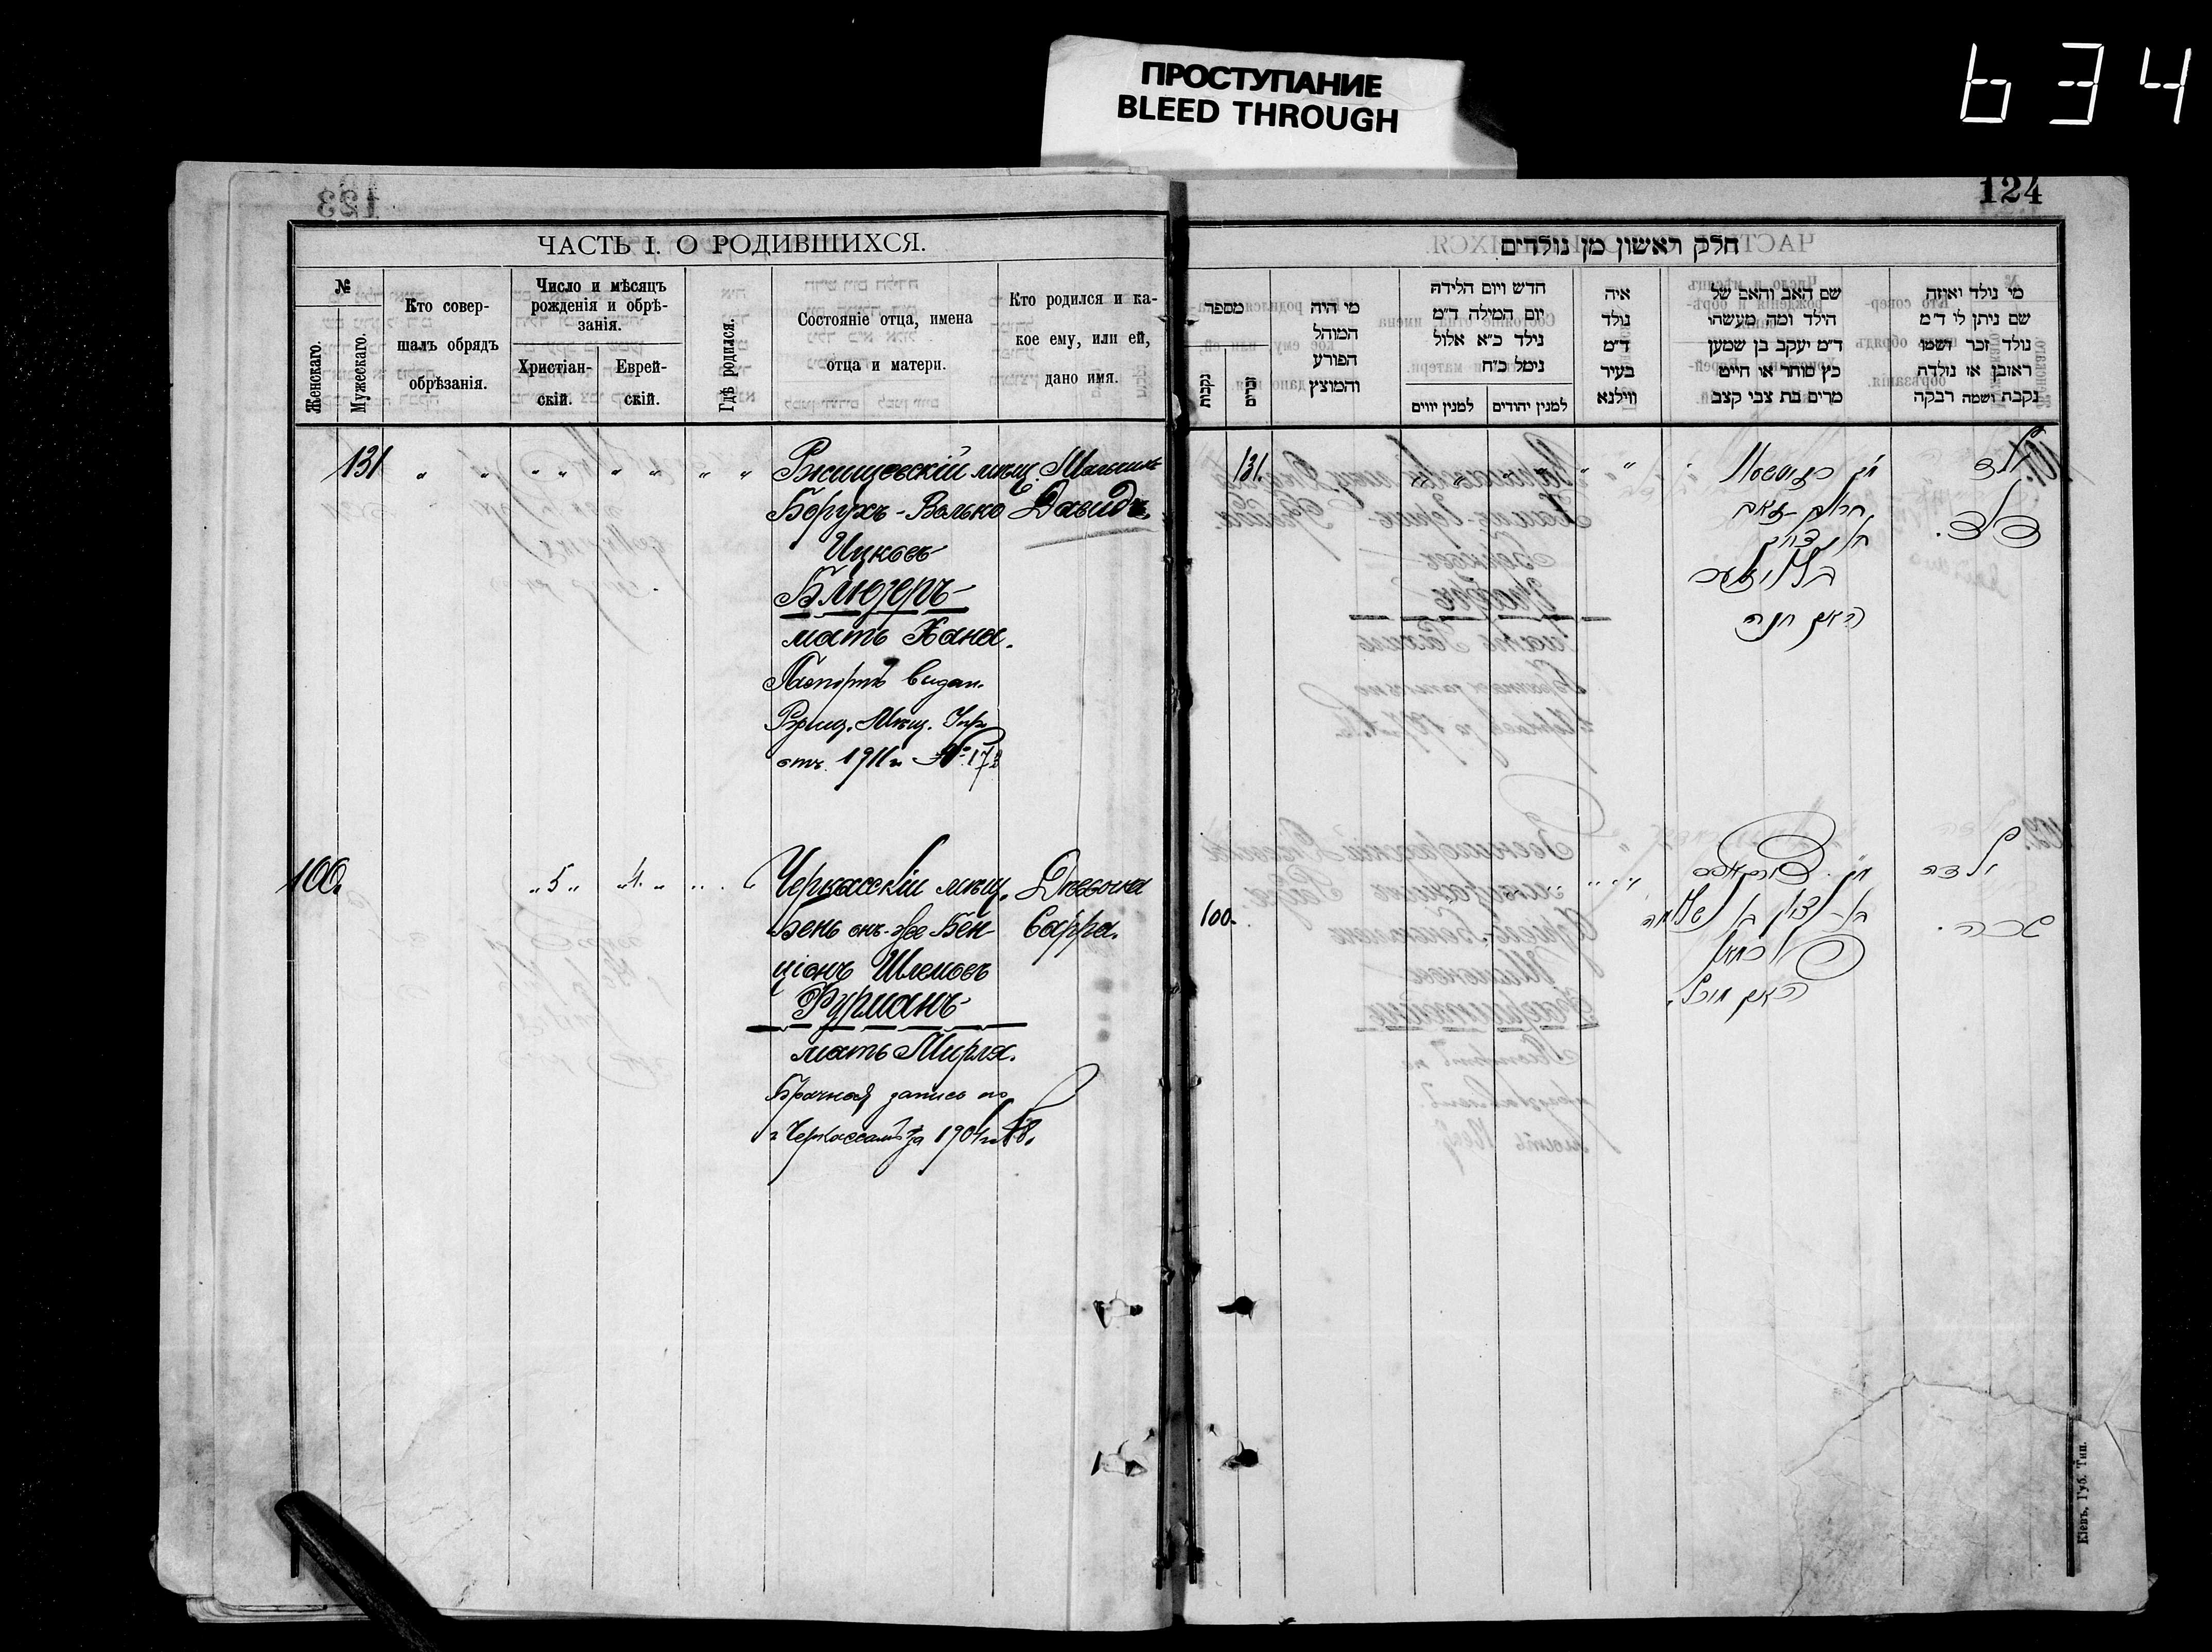 ПРОСТУПАНИЕ
BLEED THROUGH
634
124
ЧАСТЬ I. О РОДИВШИХСЯ.
№
Женскаго.
Мужескаго.
Кто совер-
шалъ обрядъ
обрѣзанія.
Число и мѣсяцъ
рожденія и обрѣ-
занія.
Христіан-
скій.
Еврей-
скій.
Гдѣ родился.
Состояніе отца, имена
отца и матери.
Кто родился и ка-
кое ему, или ей,
дано имя.
131 " " " " " " " " Ржищевскій мѣщ. Мальчикъ
Борухъ-Волько Давидъ.
Ицковъ
Блюзеръ
мать Хана.
Паспортъ выдан.
Ржищ. Мѣщ. Упр
отъ 1911 г №
100. " 5 " " 4. " Черкасскій мѣщ. Дѣвочка
Бень онъ-же Бен Сарра.
ціонъ Шлемовъ
Фурманъ
мать Мирля.
Брачная запись по
г Черкассамъ за 1904 г № 8.
חלק ראשון מן נולדים
מספר
נקבות
זכרים
מי היה
המוהל
הפורע
והמוצץ
חדש ויום הלידה
יום המילה ד״מ
נילד כ״א אלול
נימל כ״ח
למנין יווים
למנין יהודים
איה
נולד
ד״מ
בעיר
ווילנא
שם האב והאם של
הילד ומה מעשהו
ד״מ יעקב בן שמעון
כץ סוחר או חייט
מרים בת צבי קצב
מי נולד ואיזה
שם ניתן לו ד״מ
נולד זכר ושמו
ראובן או נולדה
נקבה ושמה רבקה
131. " "
ילד
דוד.
ברוך-זאב
האם חנה
100.
ילדה
שרה.
בן-ציון בן שלמה
פורמאן
האם מירל.
Кіевъ, Губ. Тип.